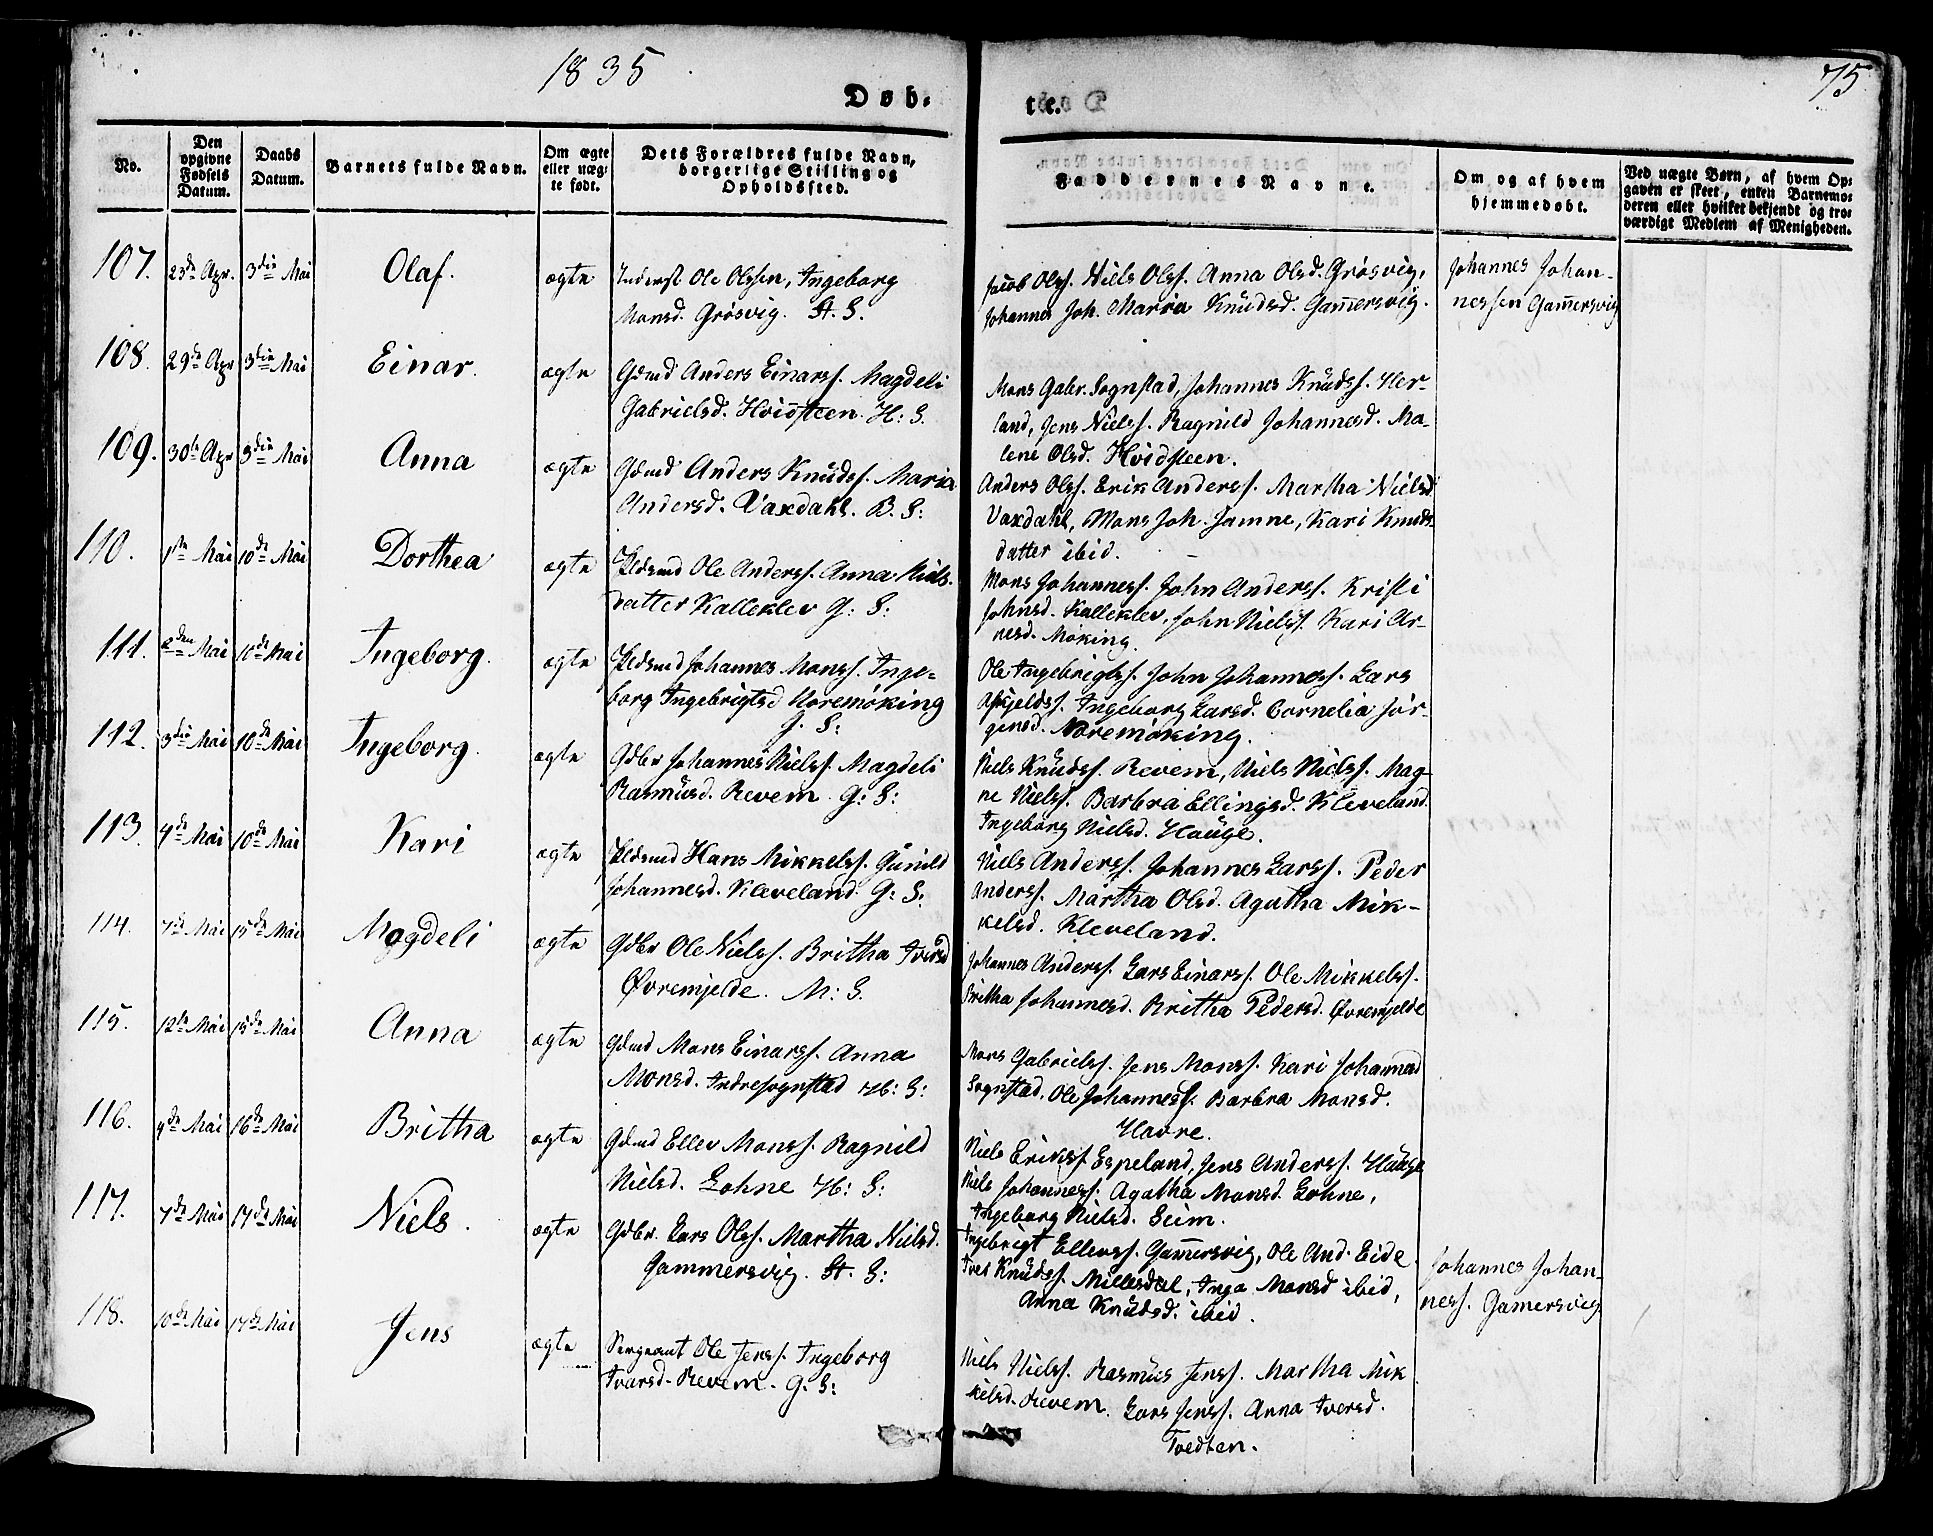 1835
75
Døb-
te.
No.
Den opgivne Fødsels Datum.
Daabs Datum.
Barnets fulde Navn.
Om ægte eller uægte født.
Dets Forældres fulde Navn, borgerlige Stilling og Opholdssted.
Faddernes Navne.
Om og af hvem hjemmedøbt.
Ved uægte Børn, af hvem Opgaven er skeet, enten Barnemoderen eller hvilket bekjendt og troværdigt Medlem af Menigheden.
107. 23de Apr. 3die Mai Olaf. ægte
Inderst Ole Olssen, Ingeborg
Monsd. Grösvig. St. S.
Jacob Olss. Niels Olss. Anna Olsd. Grösvig,
Johannes Joh. Maria Knüdsd. Gam̄ersvig.
Johannes Johan-
nessen Gam̄ersvig
108. 29de Apr 3die Mai Einar. ægte
Gdmd Anders Einarss. Magdeli
Gabrielsd. Hvidsteen. H: S.
Mons Gabr. Sognstad, Johannes Knüdss. Her-
land, Jens Nielss. Ragnild Johannesd. Ma-
lene Olsd. Hvidsteen.
109. 30te Apr 3die Mai Anna ægte
Gdmd Anders Knüdss. Maria
Andersd. Vaxdahl. B. S:
Anders Olss. Erik Anderss. Martha Nielsd
Vaxdahl, Mons Joh. Jamne, Kari Knuds-
datter ibid.
110. 1ste Mai 10de Mai Dorthea ægte
Pldsmd Ole Anderss. Anna Niels-
datter Kalleklev G: S:
Mons Johanness. John Anderss. Kristi
Johnsd. Kalleklev, John Nielss. Kari Ar-
nesd. Möking.
111. 2den Mai 10de Mai Ingeborg. ægte
Pldsmd Johannes Monss. Inge-
borg Ingebrigtsd Noremöking
G. S:
Ole Ingebrigtss. John Johanness. Lars
Askjeldss. Ingeborg Larsd. Cornelia Jör-
gensd. Noremöking.
112. 3die Mai 10de Mai Ingeborg. ægte
Gdbr Johannes Nielss. Magdeli
Rasmüsd. Revem. G: S:
Niels Knüdss. Revem, Niels Nielss. Mag-
ne Nielss. Barbra Ellingsd. Kleveland.
Ingeborg Nielsd. Haüge.
113. 4de Mai 10de Mai Kari ægte
Pldsmd Hans Mikkelss. Günild
Johannesd. Kleveland. G: S:
Niels Anderss. Johannes Larss. Peder
Anderss. Martha Olsd. Agatha Mik-
kelsd. Kleveland.
114. 7de Mai 15de Mai Magdeli ægte
Gdbr Ole Nielss. Britha Ivarsd
Øvremjelde. M: S.
Johannes Anderss. Lars Einarss. Ole Mikkelss.
Britha Johannesd. Britha Pedersd. Øvremjelde
115. 12te Mai 15de Mai Anna ægte
Gdmd Mons Einarss. Anna
Monsd. Indresognstad H: S:
Mons Gabrielss. Jens Monss. Kari Johannesd
Sognstad, Ole Johanness. Barbra Monsd.
Havre.
116. 9de Mai 16de Mai Britha ægte
Gdmd Ellev Monss. Ragnild
Nielsd. Lohne H: S:
Niels Erikss. Espeland, Jens Anderss. Haüge
Niels Johanness. Agatha Monsd. Lohne,
Ingeborg Nielsd. Seim.
117. 7de Mai 17de Mai Niels. ægte
Gdbr. Lars Olss. Martha Nielsd.
Gammersvig. St. S:
Ingebrigt Ellevss. Gam̄ersvig, Ole And. Eide.
Ivar Knüdss. Millesdal, Inga Monsd ibid,
Anna Knüdsd. ibid.
Johannes Johan-
ness. Gamersvig
118. 10de Mai 17de Mai Jens ægte
Sergeant Ole Jenss. Ingeborg
Ivarsd. Revem. G: S:
Niels Nielss. Rasmüs Jenss. Martha Mik
kelsd. Revem. Lars Jenss. Anna Iversd.
Tvedten.